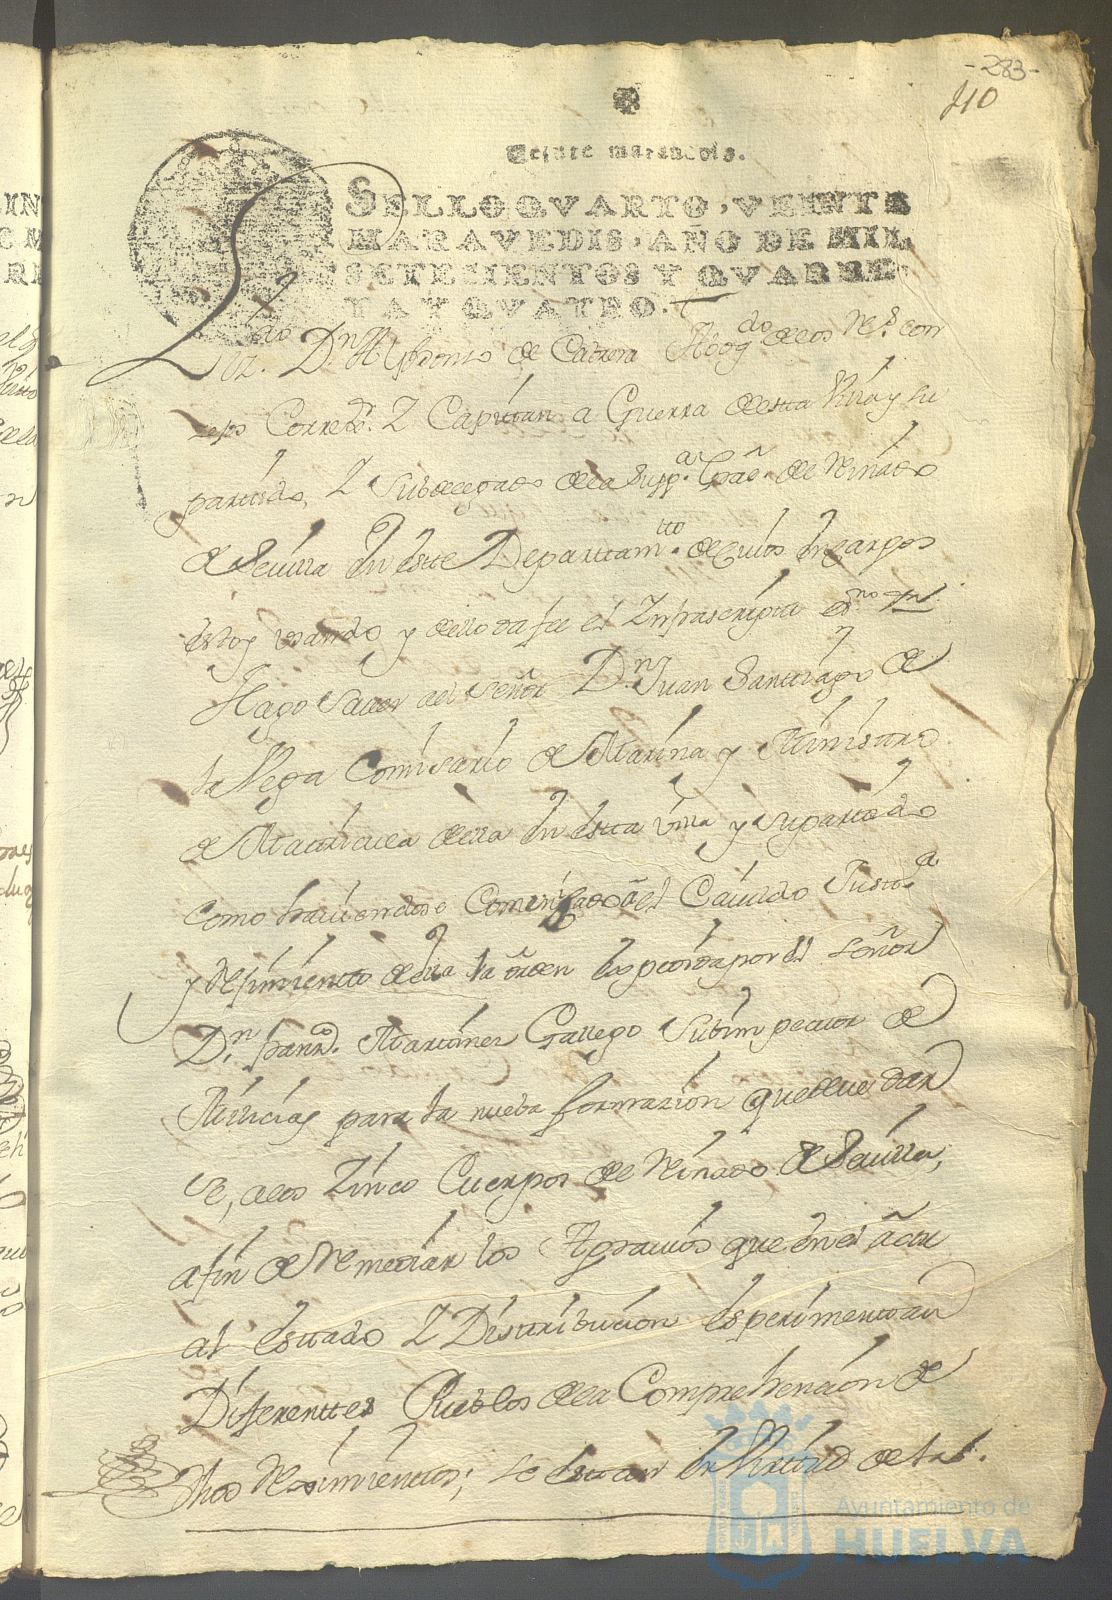 -283-
110
Veinte maravedis.
SELLO QVARTO, VEINTE
MARAVEDIS, AÑO DE MIL
SETECIENTOS Y QVAREN-
TA Y QVATRO.
Dn. Alfonso de Cabrera Abogdo de los Rs. con
Correxor. Y Capitan a Guerra desta Villa y su
partido, Y Subdelegado de la Supp.a Gral. de Reinado
de Sevilla en este Departtamtto. de Cuios Encargos
estoy usando y dello da fee el Ynfrascripto Esno.
Hago saver al Señor Dn. Juan Santiago de
la Vega Comisario de Marina y Ministro
de Matricula della en esta Villa y su partido
como haviendose Comunicado el Cavildo Justa.
y Reximiento della la orden expedida por el Señor
Dn. Martinez Gallego Subinspector de
Milicias para la nueba formazion que deve dar
se, a los Zinco Cuerpos de Reinado de Sevilla,
a fin de Remediar los Agravios que en el
al estado Y Distribucion esperimentan
Diferenttes Pueblos de la Comprehencion de
dhos Reximientos; en Virtud de tal.
Ayuntamiento de
HUELVA